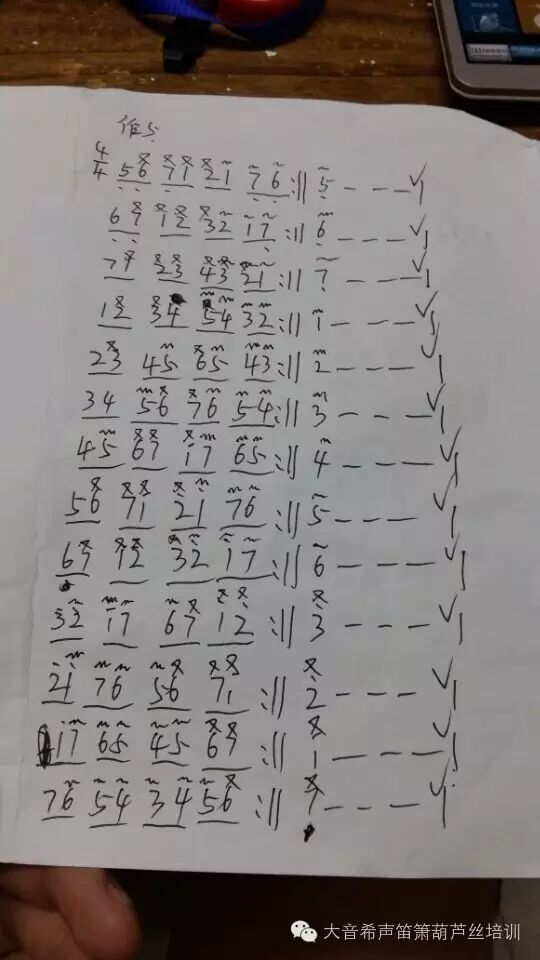 作5
4/4 56 71 21 76 :|| 5 - - - ✓|
67 12 32 17 :|| 6 - - - ✓|
7 1 23 43 21 :|| 7 - - - ✓|
12 34 54 32 :|| 1 - - - ✓|
23 45 65 43 :|| 2 - - - ✓|
34 56 76 54 :|| 3 - - - ✓|
45 67 17 65 :|| 4 - - - ✓|
56 71 21 76 :|| 5 - - - ✓|
67 12 32 17 :|| 6 - - - ✓|
32 17 67 12 :|| 3 - - - ✓|
21 76 56 71 :|| 2 - - - ✓|
17 65 45 67 :|| 1 - - - ✓|
76 54 34 56 :|| 7 - - - ✓|
大音希声笛箫葫芦丝培训